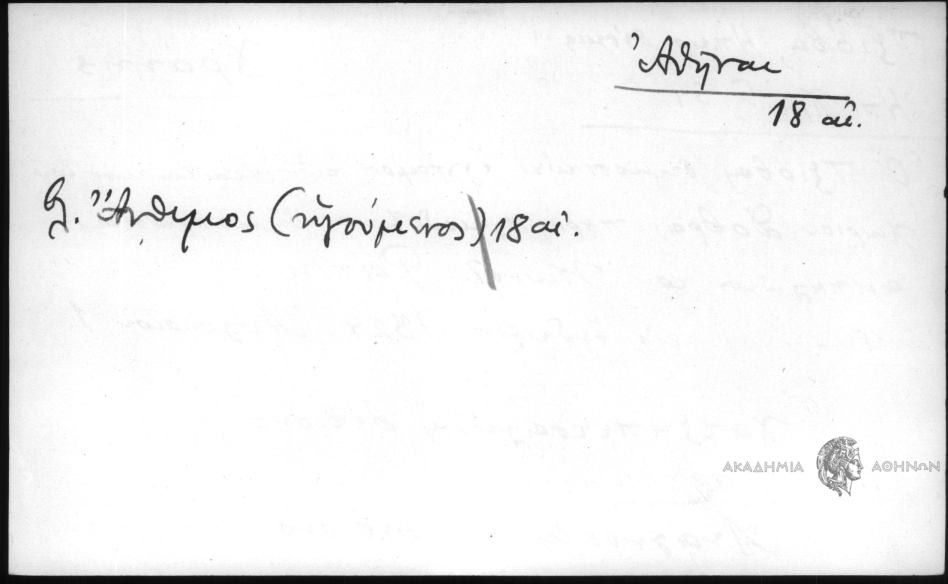 Ἀθῆναι
18 αἰ.
βλ. Ἄνθιμος (ἡγούμενος) 18 αἰ.
ΑΚΑΔΗΜΙΑ ΑΘΗΝΩΝ